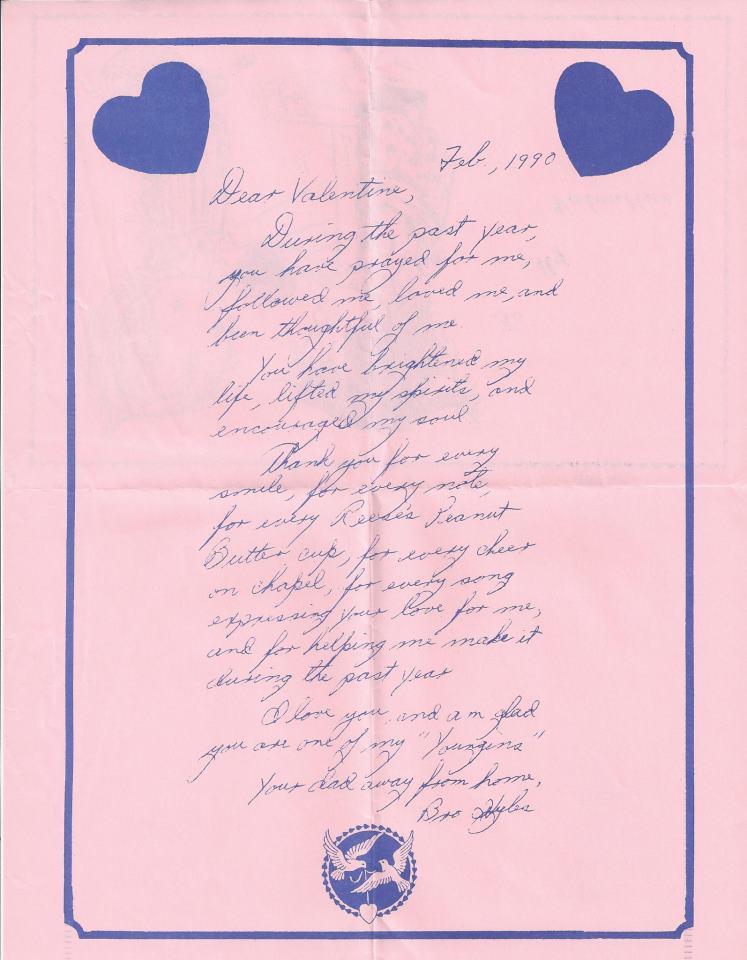 Feb., 1990
Dear Valentine,
During the past year,
you have prayed for me,
followed me, loved me, and
been thoughtful of me.
You have brightened my
life, lifted my spirits, and
encouraged my soul.
Thank you for every
smile, for every note,
for every Reese's Peanut
Butter cup, for every cheer
in chapel, for every song
expressing your love for me,
and for helping me make it
during the past year
I love you, and am glad
you are one of my "Youngins"
Your dad away from home,
Bro Hyles